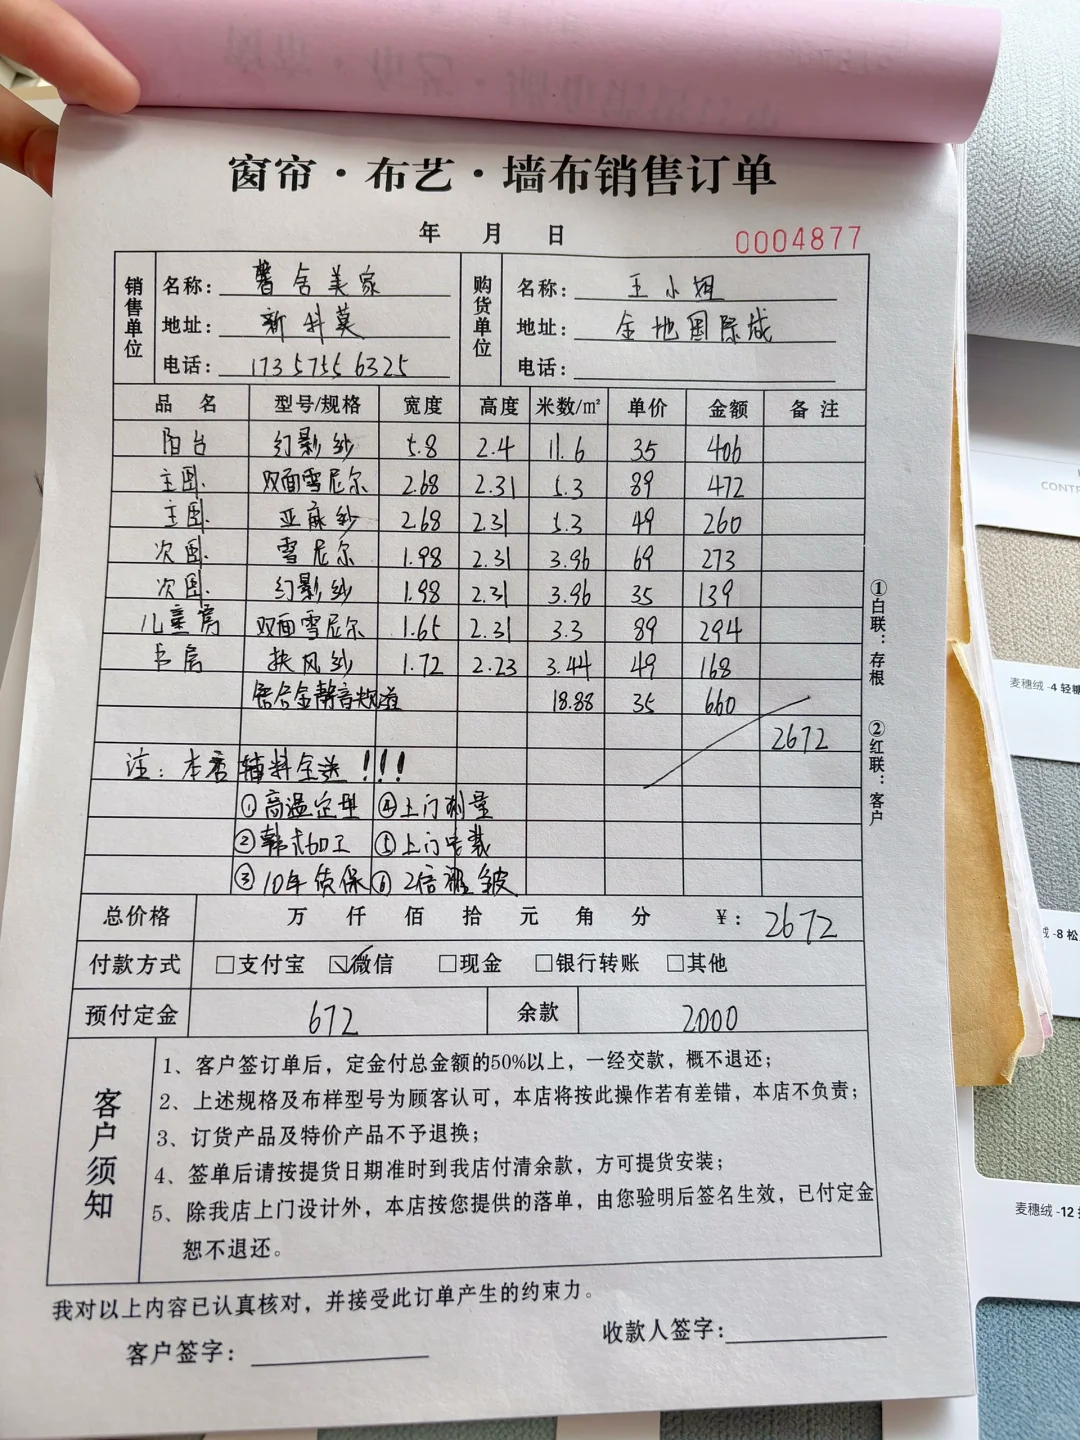 窗帘·布艺·墙布销售订单
年 月 日 0004877
销售单位 名称：馨舍美家 购货单位 名称：王小姐
地址：新科莫 地址：金地国际城
电话：17357556325 电话：
品名 型号/规格 宽度 高度 米数/㎡ 单价 金额 备注
阳台 幻影纱 5.8 2.4 11.6 35 406
主卧 双面雪尼尔 2.68 2.31 5.3 89 472
主卧 亚麻纱 2.68 2.31 5.3 49 260
次卧 雪尼尔 1.98 2.31 3.96 69 273
次卧 幻影纱 1.98 2.31 3.96 35 139
儿童房 双面雪尼尔 1.65 2.31 3.3 89 294
书房 扶风纱 1.72 2.23 3.44 49 168
铝合金静音轨道 18.88 35 660
2672
注：本店辅料全送！！！
①高温定型 ④上门测量
②韩式加工 ⑤上门安装
③10年质保 ⑥2倍褶皱
总价格 万 仟 佰 拾 元 角 分 ￥：2672
付款方式 □支付宝 ☑微信 □现金 □银行转账 □其他
预付定金 672 余款 2000
客户须知
1、客户签订单后，定金付总金额的50%以上，一经交款，概不退还；
2、上述规格及布样型号为顾客认可，本店将按此操作若有差错，本店不负责；
3、订货产品及特价产品不予退换；
4、签单后请按提货日期准时到我店付清余款，方可提货安装；
5、除我店上门设计外，本店按您提供的落单，由您验明后签名生效，已付定金
恕不退还。
我对以上内容已认真核对，并接受此订单产生的约束力。
客户签字： 收款人签字：
①白联：存根 ②红联：客户
CONTR
麦穗绒 -4 轻
绒 -8 松
麦穗绒 -12